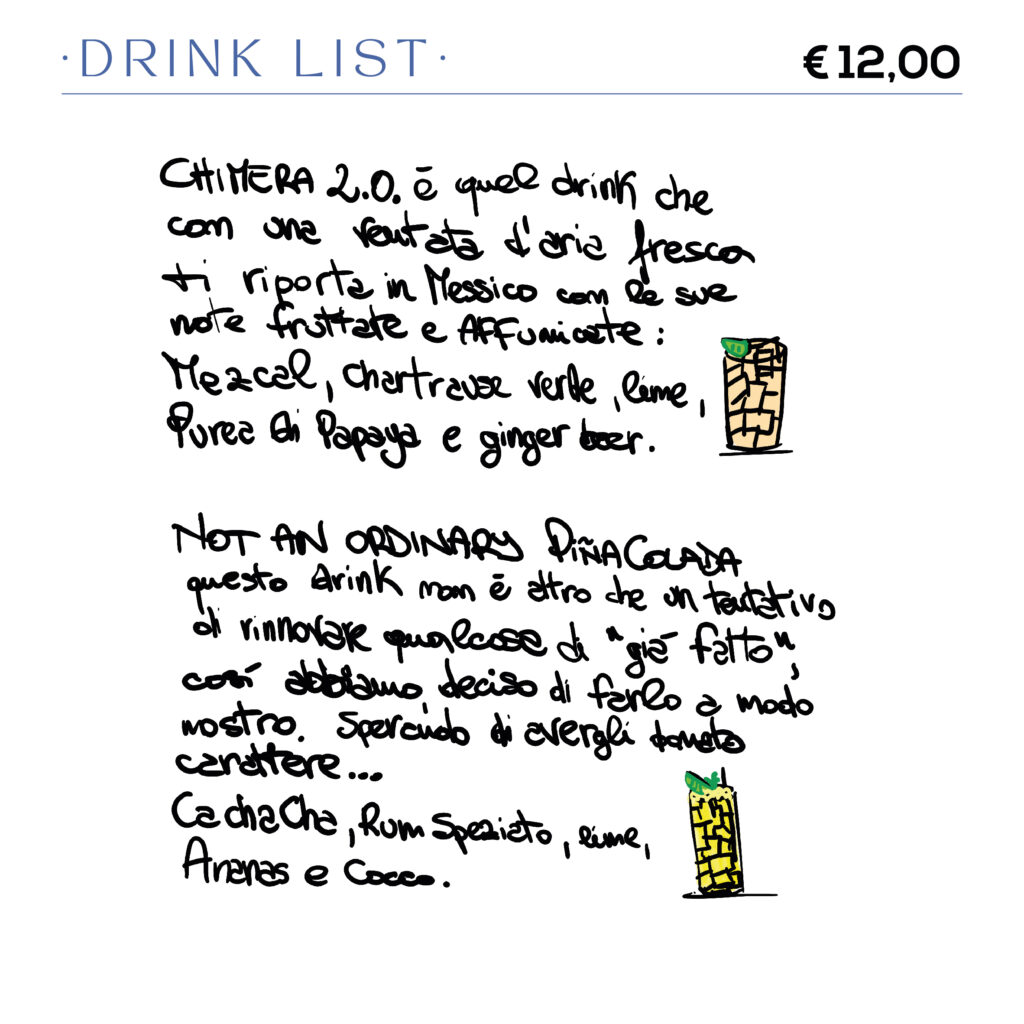 ·DRINK LIST·
€ 12,00
CHIMERA 2.0. è quel drink che
con una ventata d'aria fresca
ti riporta in Messico con le sue
note fruttate e AFFumicate :
Mezcal, Chartrause verde, lime,
Purea di Papaya e ginger beer.
NOT AN ORDINARY PIÑACOLADA
questo drink non è altro che un tentativo
di rinnovare qualcosa di "già fatto",
così abbiamo deciso di farlo a modo
nostro. Sperando di avergli donato
carattere...
CachaCha, Rum Speziato, lime,
Ananas e Cocco.